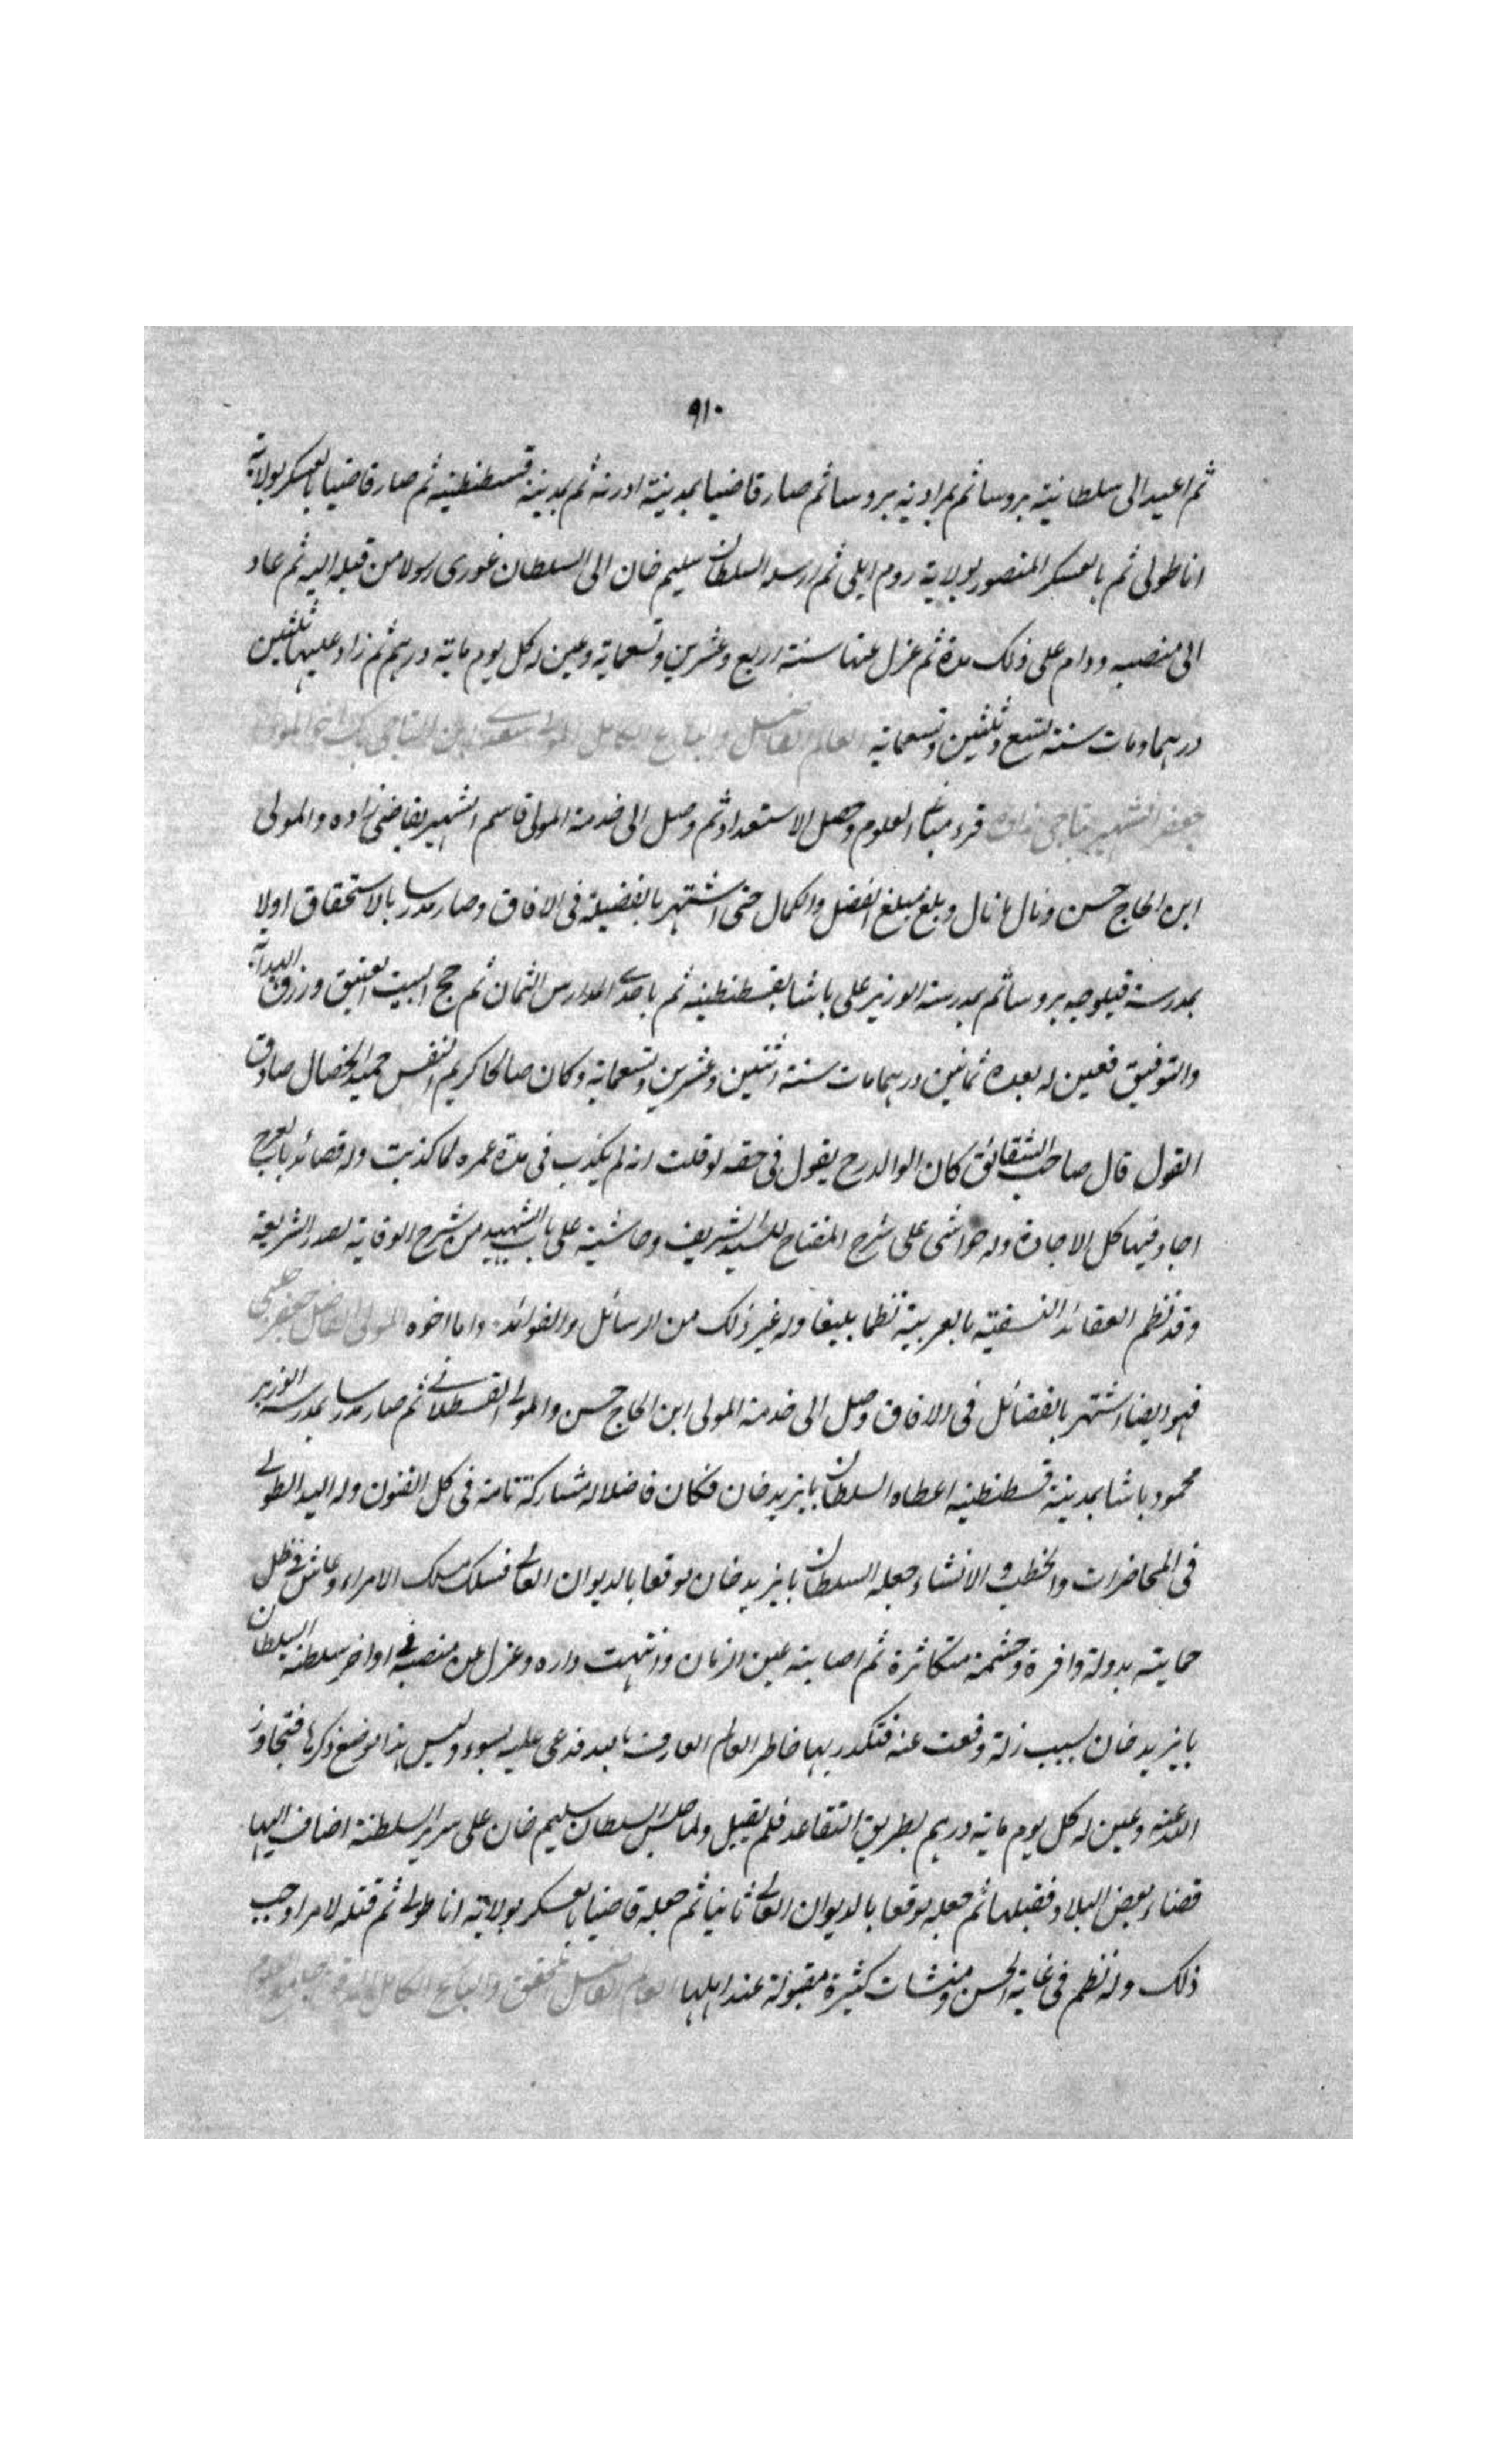 ٩١٠
ثم اعيد الى سلطانية بروسا ثم بمرادية بروسا ثم صار قاضيا بمدينة ادرنه ثم بمدينة قسطنطينيه ثم صار قاضيا بالعسكر بولاية
اناطولى ثم بالعسكر المنصور بولاية روم ايلى ثم ارسله السلطان سليم خان الى السلطان غورى رسولا من قبله اليه ثم عاد
الى منصبه ودام على ذلك مدة ثم عزل عنها سنة اربع وعشرين وتسعماية وعين له كل يوم ماية درهم ثم زاد عليها ثلثين
درهما ومات سنة تسع وثلثين وتسعماية العالم الفاضل والبارع الكامل المولى سعدى بن التاجى بك اخو المولى
جعفر الشهير بتاجى زاده قرء مبانى العلوم وحصل الاستعداد ثم وصل الى خدمة المولى قاسم الشهير بقاضى زاده والمولى
ابن الحاج حسن ونال ما نال وبلغ مبلغ الفضل والكمال حتى اشتهر بالفضيلة فى الافاق وصار مدرسا بالاستحقاق اولا
بمدرسة قپلوجه بروسا ثم بمدرسة الوزير على باشا بقسطنطينيه ثم باحدى المدارس الثمان ثم حج البيت العتيق ورزق الهداية
والتوفيق فعين له بعده ثمانين درهما مات سنة اثنتين وعشرين وتسعماية وكان صالحا كريم النفس حميد الخصال صادق
القول قال صاحب الشقائق كان الوالد رح يقول فى حقه لو قلت انه لم يكذب فى مدة عمره لما كذبت وله قصائد بالعربى
اجاد فيها كل الاجادة وله حواشى على شرح المفتاح للسيد الشريف وحاشية على باب الشهيد من شرح الوقاية لصدر الشريعة
وقد نظم العقائد النسفية بالعربية نظما بليغا وله غير ذلك من الرسائل والفوائد واما اخوه المولى الفاضل جعفر چلبى
فهو ايضا اشتهر بالفضائل فى الافاق وصل الى خدمة المولى ابن الحاج حسن والمولى القسطلانى ثم صار مدرسا بمدرسة الوزير
محمود باشا بمدينة قسطنطينيه اعطاه السلطان بايزيد خان فكان فاضلا له مشاركة تامة فى كل الفنون وله اليد الطولى
فى المحاضرات والخطب والانشاء جعله السلطان بايزيد خان موقعا بالديوان العالى فسلك مسلك الامراء وعاش فى ظل
حمايته بدولة وافرة وحشمة متكاثرة ثم اصابته عين الزمان وانتهبت داره وعزل عن منصبه فى اواخر سلطنة السلطان
بايزيد خان بسبب زلة وقعت عنه فتكدر بها خاطر العالم العارف بالله فدعى عليه بسوء وليس هذا موضع ذكرها فتجاوز
الله عنه وعين له كل يوم ماية درهم بطريق التقاعد فلم يقبل ولما جلس السلطان سليم خان على سرير السلطنة اضاف اليها
قضاء بعض البلاد فقبلها ثم جعله موقعا بالديوان العالى ثانيا ثم جعله قاضيا بالعسكر بولاية اناطولى ثم قتله لامر اوجب
ذلك وله نظم فى غاية الحسن ومنشات كثيرة مقبولة عند اهلها العالم الفاضل المحقق والبارع الكامل المدقق